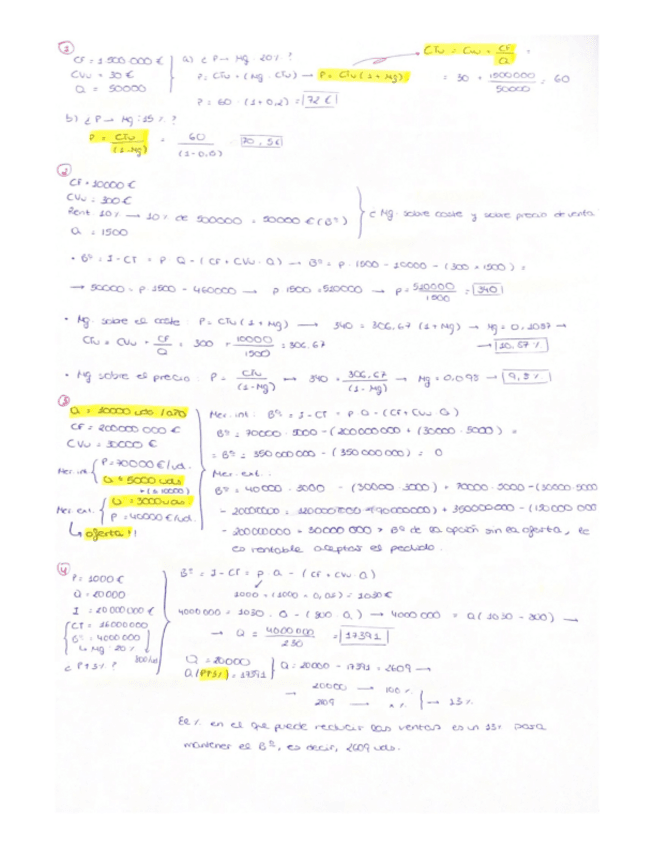 ① CTu = CVu + CF/Q =
CF = 1500.000 € a) ¿P → Mg = 20% ?
CVu = 30 € P = CTu + (Mg · CTu) → P = CTu (1 + Mg) = 30 + 1500000/50000 = 60
Q = 50000
P = 60 · (1+0,2) = 72 €
b) ¿P → Mg = 15% ?
P = CTu/(1-Mg) = 60/(1-0,15) = 70,5€
②
CF = 10000 €
CVu = 300 €
Rent 10% → 10% de 500000 = 50000 € (Bº) ¿Mg. sobre coste y sobre precio de venta
Q = 1500
• Bº = I - CT = P · Q - (CF + CVu · Q) → Bº = P · 1500 - 10000 - (300 × 1500) =
→ 50000 = P · 1500 - 460000 → P · 1500 = 510000 → P = 510000/1500 = 340
• Mg. sobre el coste: P = CTu (1 + Mg) → 340 = 306,67 (1 + Mg) → Mg = 0,1087 →
CTu = CVu + CF/Q = 300 + 10000/1500 = 306,67 → 10,87%
• Mg sobre el precio: P = CTu/(1-Mg) → 340 = 306,67/(1-Mg) → Mg = 0,098 → 9,8%
③
Q = 10000 uds/año Mer. int: Bº = I - CT = P · Q - (CF + CVu · Q)
CF = 200000000 € Bº = 70000 · 5000 - (200000000 + (30000 · 5000) =
CVu = 30000 € = Bº = 350000000 - (350000000) = 0
Mer. int. P = 70000 €/ud. Mer. ext.:
Q = 5000 uds Bº = 40000 · 3000 - (30000 · 3000) + 70000 · 5000 - (30000 · 5000
Mer. ext. Q = 3000 uds. - 200000000 =
P = 40000 €/ud.
↳ oferta!! - 200000000 = 30000000 > Bº de la opción sin la oferta,
es rentable aceptar el pedido.
④
P = 1000 € Bº = I - CT = P · Q - (CF + CVu · Q)
Q = 20000 1000 + (1000 · 0,03) = 1030 €
I = 20000000 € 4000000 = 1030 · Q - (800 · Q) → 4000000 = Q (1030 - 800) →
CT = 16000000
Bº = 4000000 → Q = 4000000/230 = 17391
↳ Mg 20%
¿P + 3% ? Q = 20000
Q (P+3%) = 17391 Q = 20000 - 17391 = 2609 →
→ 20000 → 100%
→ x% → 13%
El % en el que puede reducir las ventas es un 13% para
mantener el Bº, es decir, 2609 uds.